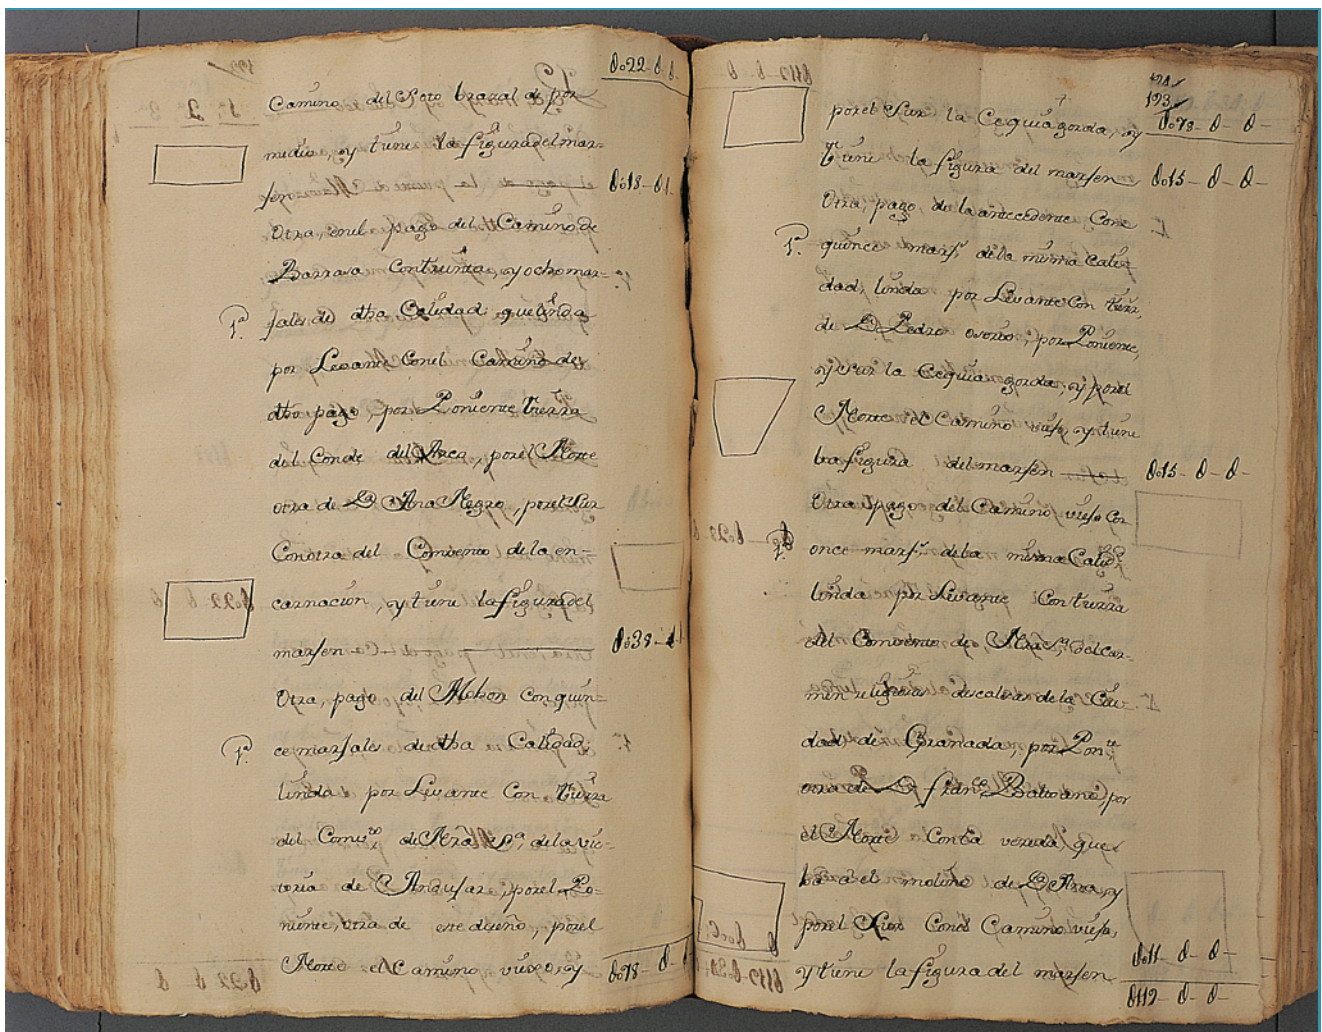 Camino del Soto brazal de por
medio, y tiene la figura del mar-
sen
Otra, en el pago del Camino de
Barrasa Con treinta, y ocho mar-
1ª. sales de dha Calidad que linda
por Levante Con el Camino de
dho pago, por Poniente tierra
del Conde del Arca, por el Norte
otra de Dª Ana Negro, por el Sur
Con otra del Convento de la en-
carnacion, y tiene la figura del
marsen
Otra, pago del Mohon Con quin-
1ª. ce marsales de dha Calidad,
linda por Levante Con tierra
del Convto, de Nra Sª, de la vic-
toria de Andujar, por el Po-
niente, otra de este dueño, por el
Norte el Camino viexo, y
do22 d d
do18 d
do38 d
do98 d
193
por el Sur la Cequia gorda, y
tiene la figura del marsen
Otra, pago de la antecedente Con
1ª. quince mars, de la misma Cali-
dad, linda por Levante Con tierr,
de Dn Pedro osorio, por Poniente,
y Sur la Cequia gorda, y por el
Norte el Camino viejo, y tiene
la figura del marsen
Otra pago del Camino viejo Con
1ª. once mars, de la misma Calid,
linda por Levante Con tierra
del Convento de Nra Sª, del Car-
men religiosas descalzas de la Ciu-
dad, de Granada, por Ponte
otra de Dn franco, por
el Norte Con la vereda, que
ba a el molino de Dª Ana, y
por el Sur Con el Camino viejo,
y tiene la figura del marsen
do98 d d
do15 d d
do15 d d
do11 d d
d119 d d